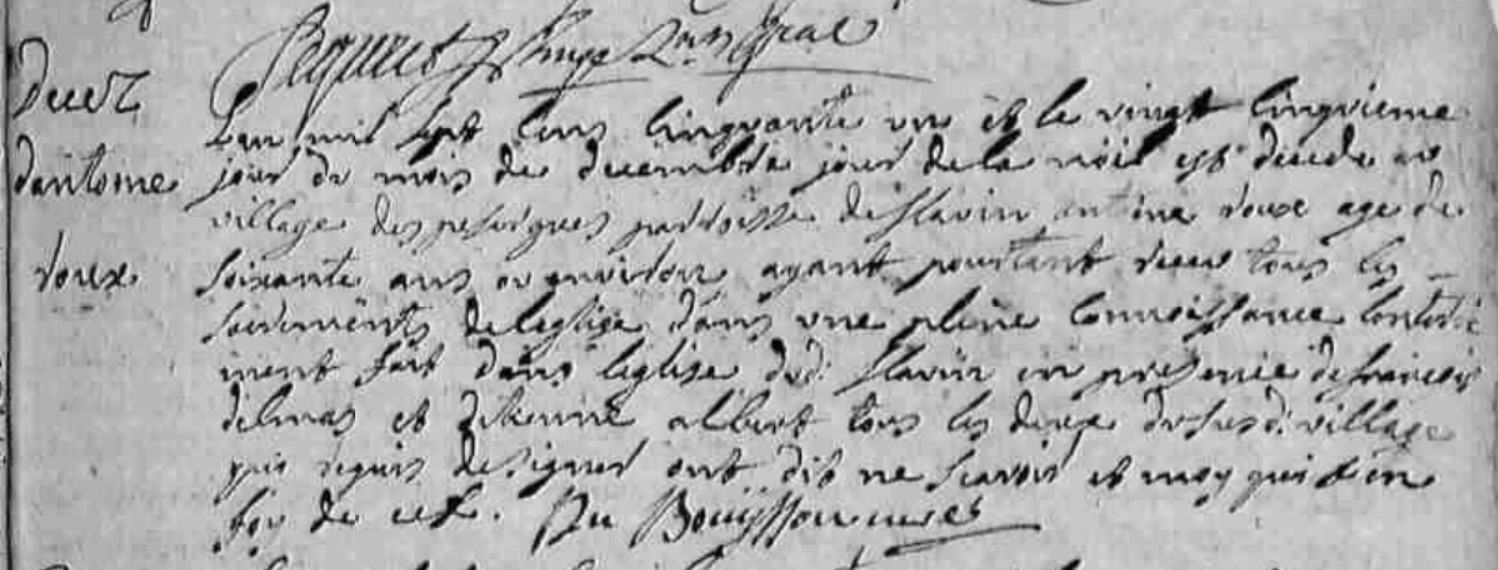 Decez
dantoine
roux
Lan mil sept cens cinquante un et le vingt cinqvieme
jour du mois de decembre jour de la noil est decede au
village des parroisse de flavin antoine roux age de
soixante ans ou environ ayant pourtant receu tous les
sacrements de leglise dans une pleine connoissance lenterre
ment fait dans leglise dud. flavin en presence de francois
delmas et detienne albert tous les deux du susd. village
qui requis de signer ont dit ne scavoir et moy qui
foy de